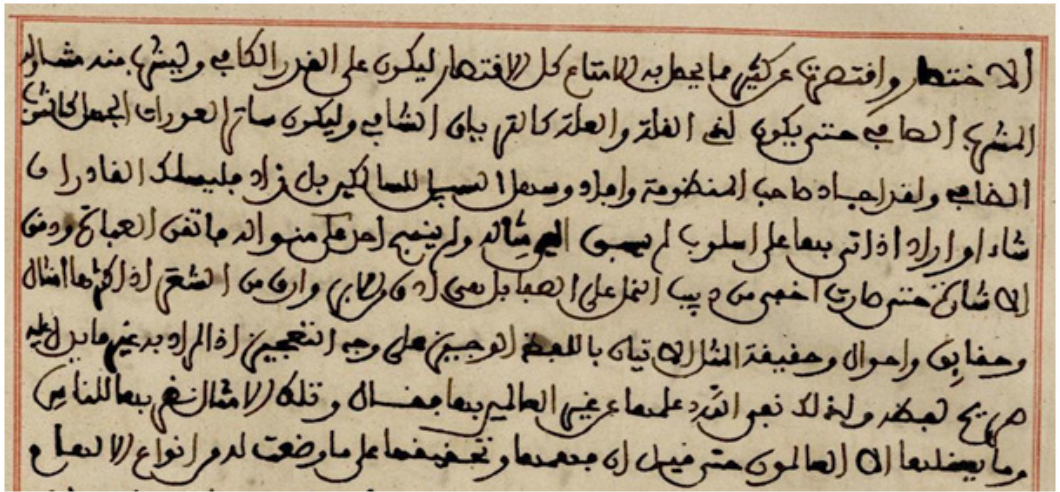 ألاختصار واقتصرت عن كثير مما يحصل به الامتاع كل الاقتصار ليكون على القدر الكافي وليشرب منه
المشرب الصافي حتى يكون لذي الغلة والعلة كالترياق الشافي وليكون ساتر العورات الجهل كاشف
الخافي ولقد اجاد صاحب المنظومة وافاد وسهل السبيل للسالكين بل زاد فليسلك القادر ان
شاء او اراد اذ اتى بها على اسلوب لم يسبق اليه مثاله ولم ينسج احد على منواله فاتقن العبارة ودقق
الاشارة حتى صارت اخفى من دبيب النمل على الصفا بل هي ادق وارق من الشعر اذ اكثرها امثال
وحقايق واحوال وحقيقة المثل الاتيان باللفظ الوجيز على وجه التعجيز اذ المراد به غير ما يدل عليه
صريح لفظه ولذلك نفى الله علمها عن غير العالمين بها فقال وتلك الامثال نضربها للناس
وما يعقلها الا العالمون حتى قيل ان فهمها على ما وضعت له من انواع